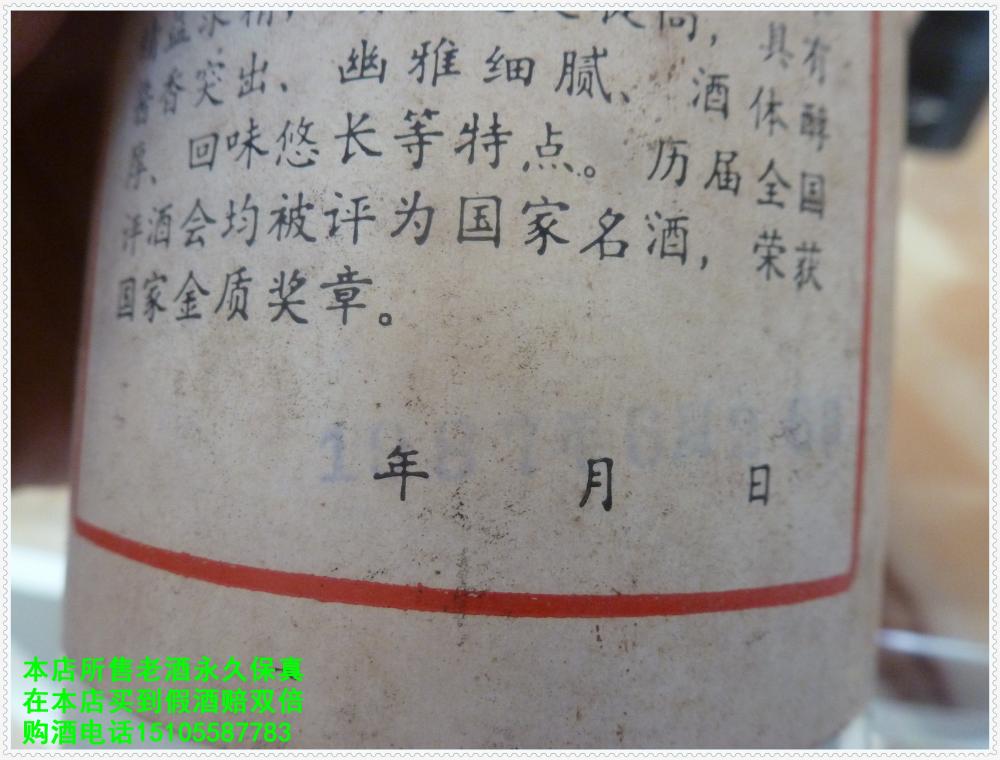 精益求精,
提高,
具有
酱香突出、幽雅细腻、酒体醇
厚、回味悠长等特点。历届全国
评酒会均被评为国家名酒,荣获
国家金质奖章。
1987年6月2
年 月 日
本店所售老酒永久保真
在本店买到假酒赔双倍
购酒电话15105587783